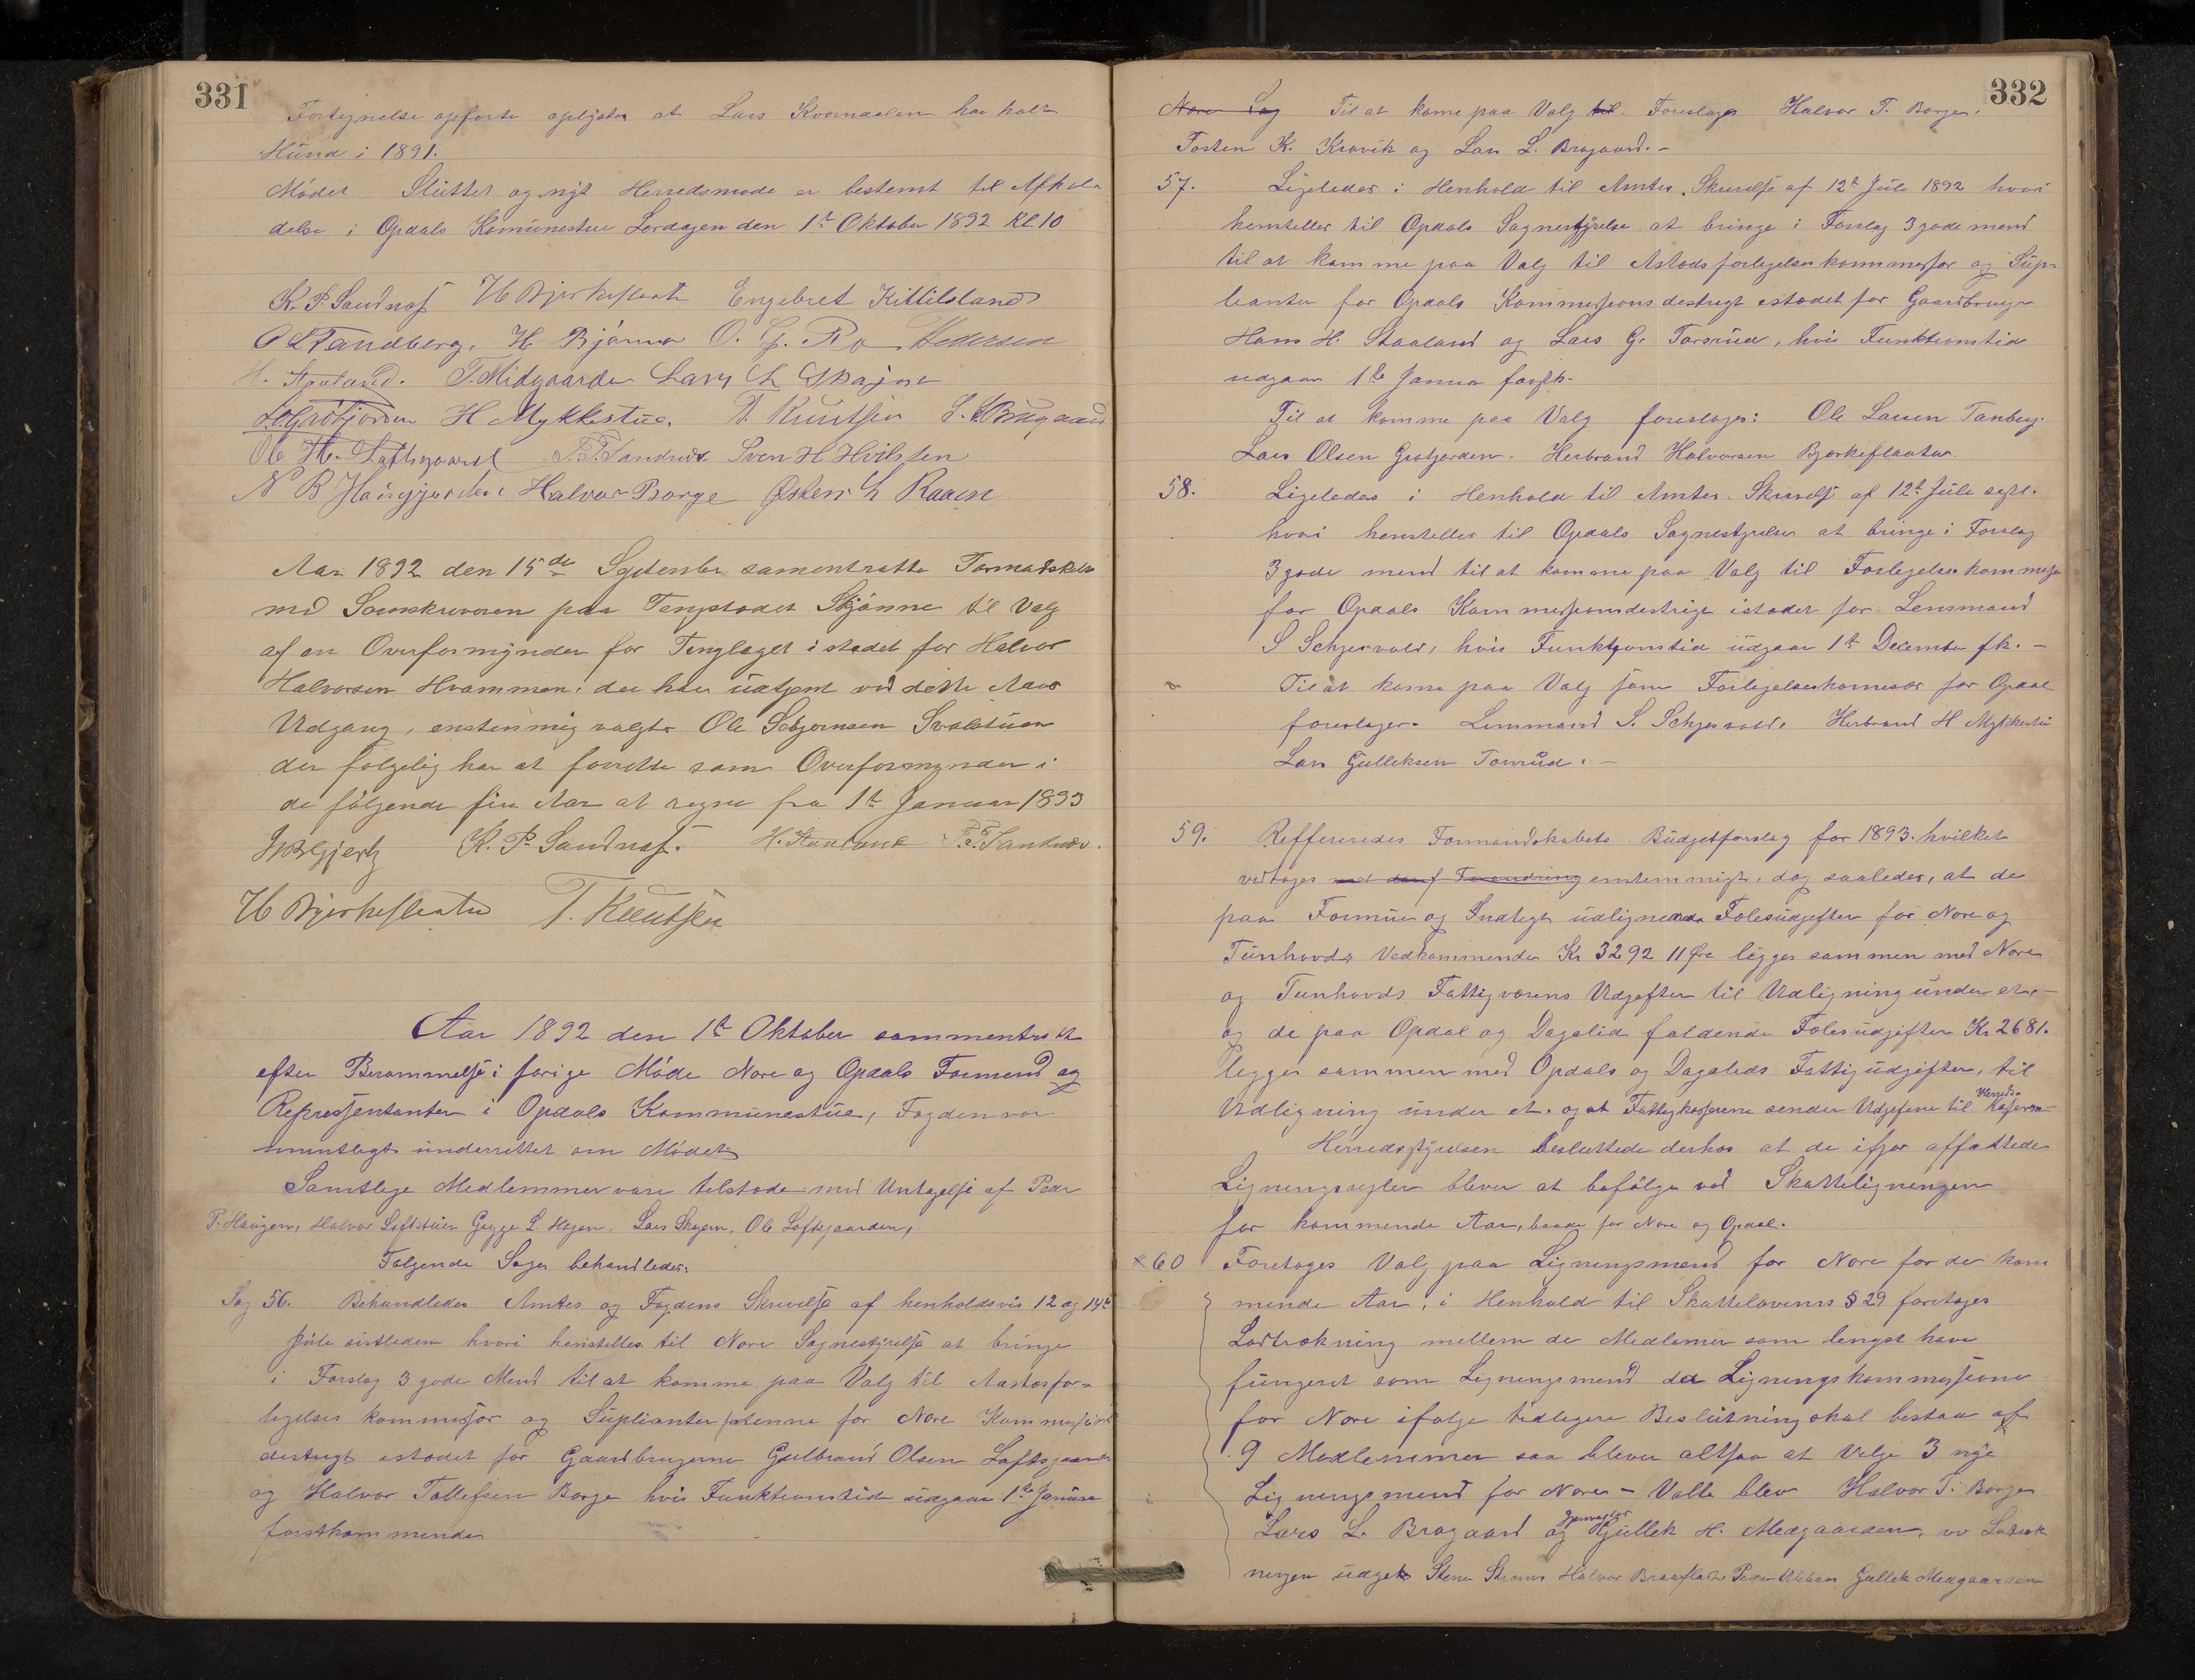 331
Fortegnelse opførte oplystes at Lars Kvornaalen har holt
Hund i 1891.
Mødet Sluttet og nyt Herredsmøde er bestemt til Afhol-
delse i Opdals Komunestue Lørdagen den 1ste Oktober 1892 Kl 10
K. P. Sandnes H Bjerkeflaata Engebret Kittilsland
O L Tandberg. H. Bjönna O. G. Ro Pedersen
H. Staaland. T. Midgaarden Lars L Skajem
L.O. Grötjorden H Mykkestue. T. Knutsen L. L. Bragaard
Ole H. Loftsgaard T.T. Sandnes Sven H Hvilsten
N B Haugjorden Halvor Borge Østen L Raaen
Aar 1892 den 15de September samentratte Formandskabet
med Sorenskriveren paa Tingstedet Skjönne til Valg
af en Overformynder for Tinglaget i stedet for Halvor
Halvorsen Hvammen, der har udtjent ved dette Aars
Udgang, enstemmig valgtes Ole Schjørnsen Svalstuen
der følgelig har at forrette som Overformynder i
de følgende fire Aar at regne fra 1ste Januar 1893
K. P. Sandnes. H. Staaland T.T. Sandnes.
H Bjerkeflaata T. Knutsen
Aar 1892 den 1ste Oktober sammentratt
efter Berammelse i forige Møde Nore og Opdals Formend og
Repressentanter i Opdals Kommunestue, Fogden var
mundtlagt underrettet om Mødet
Samtlige Medlemmer vare tilstæde med Untagelse af Peder
P. Haugen, Halvor Loftstuen Gregge L. Hagen, Lars Skajem, Ole Loftsgaarden,
Følgende Sager behandledes.
Sag 56. Behandledes Amtes og Fogdens Skrivelse af henholdsvis 12 og 14de
Jule sistleden hvori henstilles til Nore Sognestyrelse at bringe
i Forslag 3 gode Mend til at komme paa Valg til Aastedsfor-
legelses kommisær og Suplianter for Nore Kommissions
destrigt istædet for Gaardbrugerne Gulbrand Olsen Loftsgaarden
og Halvor Tollefsen Borge hvis Funktionstid udgaar 1ste Januar
førstkommende
332
Nore Sag Til at kome paa Valg til Foreslages Halvor T. Borge,
Tosten K. Kravik og Lars L. Bragaard.-
57. Ligeledes i Henhold til Amtes Skrivelse af 12te Jule 1892 hvori
henstilles til Opdals Sognestyrelse at bringe i Forslag 3 gode mend
til at komme paa Valg til Astedsforlegelseskommesser og Sup-
lianter for Opdals Kommessionsdestrigt istædet for Gaardbruger
Hans H. Staaland og Lars G. Torsrud, hvis Funktionstid
udgaar 1ste Januar førstk.
Til at komme paa Valg foreslages: Ole Larsen Tanberg.
Lars Olsen Grotjorden. Herbrand Halvorsen Bjerkeflaata.
58. Ligeledes i Henhold til Amtes Skrivelse af 12te Jule sistl.
hvori henstilles til Opdals Sognestyrelse at bringe i Forslag
3 gode mend til at komme paa Valg til Forlegelseskommesser
for Opdals Kommessionsdestrigt istædet for Lensmand
S Schjesvold, hvis Funktjonstid udgaar 1ste December fk.-
Til at kome paa Valg som Forlegelseskomesær for Opdal
foreslages. Lensmand S. Schjesvold, Herbrand H Mykkestu
Lars Gulleksen Torsrud.-
59. Reffereredes Formandskabets Budgetforslag for 1893. hvilket
vedtoges med Forandring enstemmigt, dog saaledes, at de
paa Formue og Indtegt udlignede Folesudgifter for Nore og
Tunhovds Vedkommende Kr 3292 11 Øre legges sammen med Nore
og Tunhovds Fattigvesens Udgifter til Udligning under et,-
og de paa Opdal og Dagalid faldende Folesudgifter Kr 2681.
legges sammen med Opdals og Dagalids Fattigudgifter, til
Udligning under et. og at Fattigkasserne sender Udgifterne til Herreds Kassren
Herredsstyrelsen besluttede derhos at de ifjor affattede
Ligningsregler bliver at befølge ved Skatteligningen
for kommende Aar, baade for Nore og Opdal.
×60 Foretages Valg paa Ligningsmend for Nore for det kom
mende Aar, i Henhold til Skattelovens § 29 foretages
Lodtrækning mellem de Medlemer som lengst have
fungeret som Ligningsmend da Ligningskommessione
for Nore ifølge tidligere Beslutning skal bestaa af
9 Medlemmer saa bliver altsaa at Velge 3 nye
Ligningsmend for Nore - Valte blev Halvor T. Borge
Lars L. Bragaard og gjenvalgt Gullek H. Medgaarden, ved Lodtræk
ningen udgik Stener Strøms Halvor Braaflat Peder Gullek Medgaarden